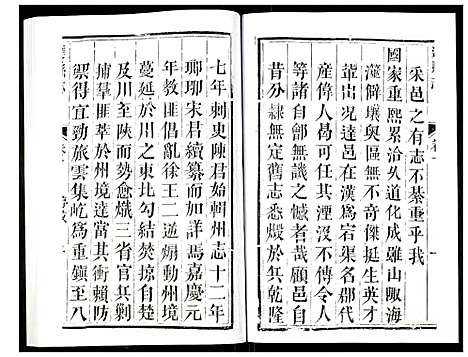 采邑之有志不綦重乎我
國家重熙累洽久道化成雖山陬海
澨僻壤與區無不奇傑挺生英才
輩出况達邑在漢爲宕渠名郡代
產偉人曷可任其湮沒不傳令人
等諸自鄶無譏之憾者哉顧邑自
昔分隸無定舊志悉燬於兵乾隆
七年刺史陳君始輯州志十二年
瑯琊宋君續纂而加詳焉嘉慶元
年教匪倡亂徐王二逆煽動州境
蔓延於川之東北勾結焚掠自楚
及川至陝而勢愈熾三省官兵剿
捕羣萃於州境達當其衝賴防
禦得宜勁旅雲集屹爲重鎭至八